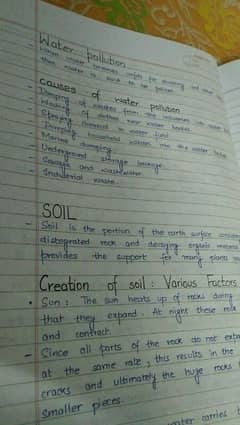 Water pollution
When water becomes unfit for drinking and other
then water is said to be polluted
causes of water pollution
- Dumping of wastes from the industries
- Washing of clothes near water bodies
- Spraying chemical in water
- Dumping household wastes into the water bodies
- Marine dumping.
- Underground storage leakage.
- Sewage and wastewater
- Industrial waste.
SOIL
- Soil is the portion of the earth surface
distegrated rock and decaying organic material
provides the support for many plants
Creation of soil: Various Factors
• Sun: The sun heats up of rocks during
that they expand. At night these rock
and contract.
- Since all parts of the rock do not expand
at the same rate, this results in the
cracks and ultimately the huge rocks
smaller pieces.
water carries